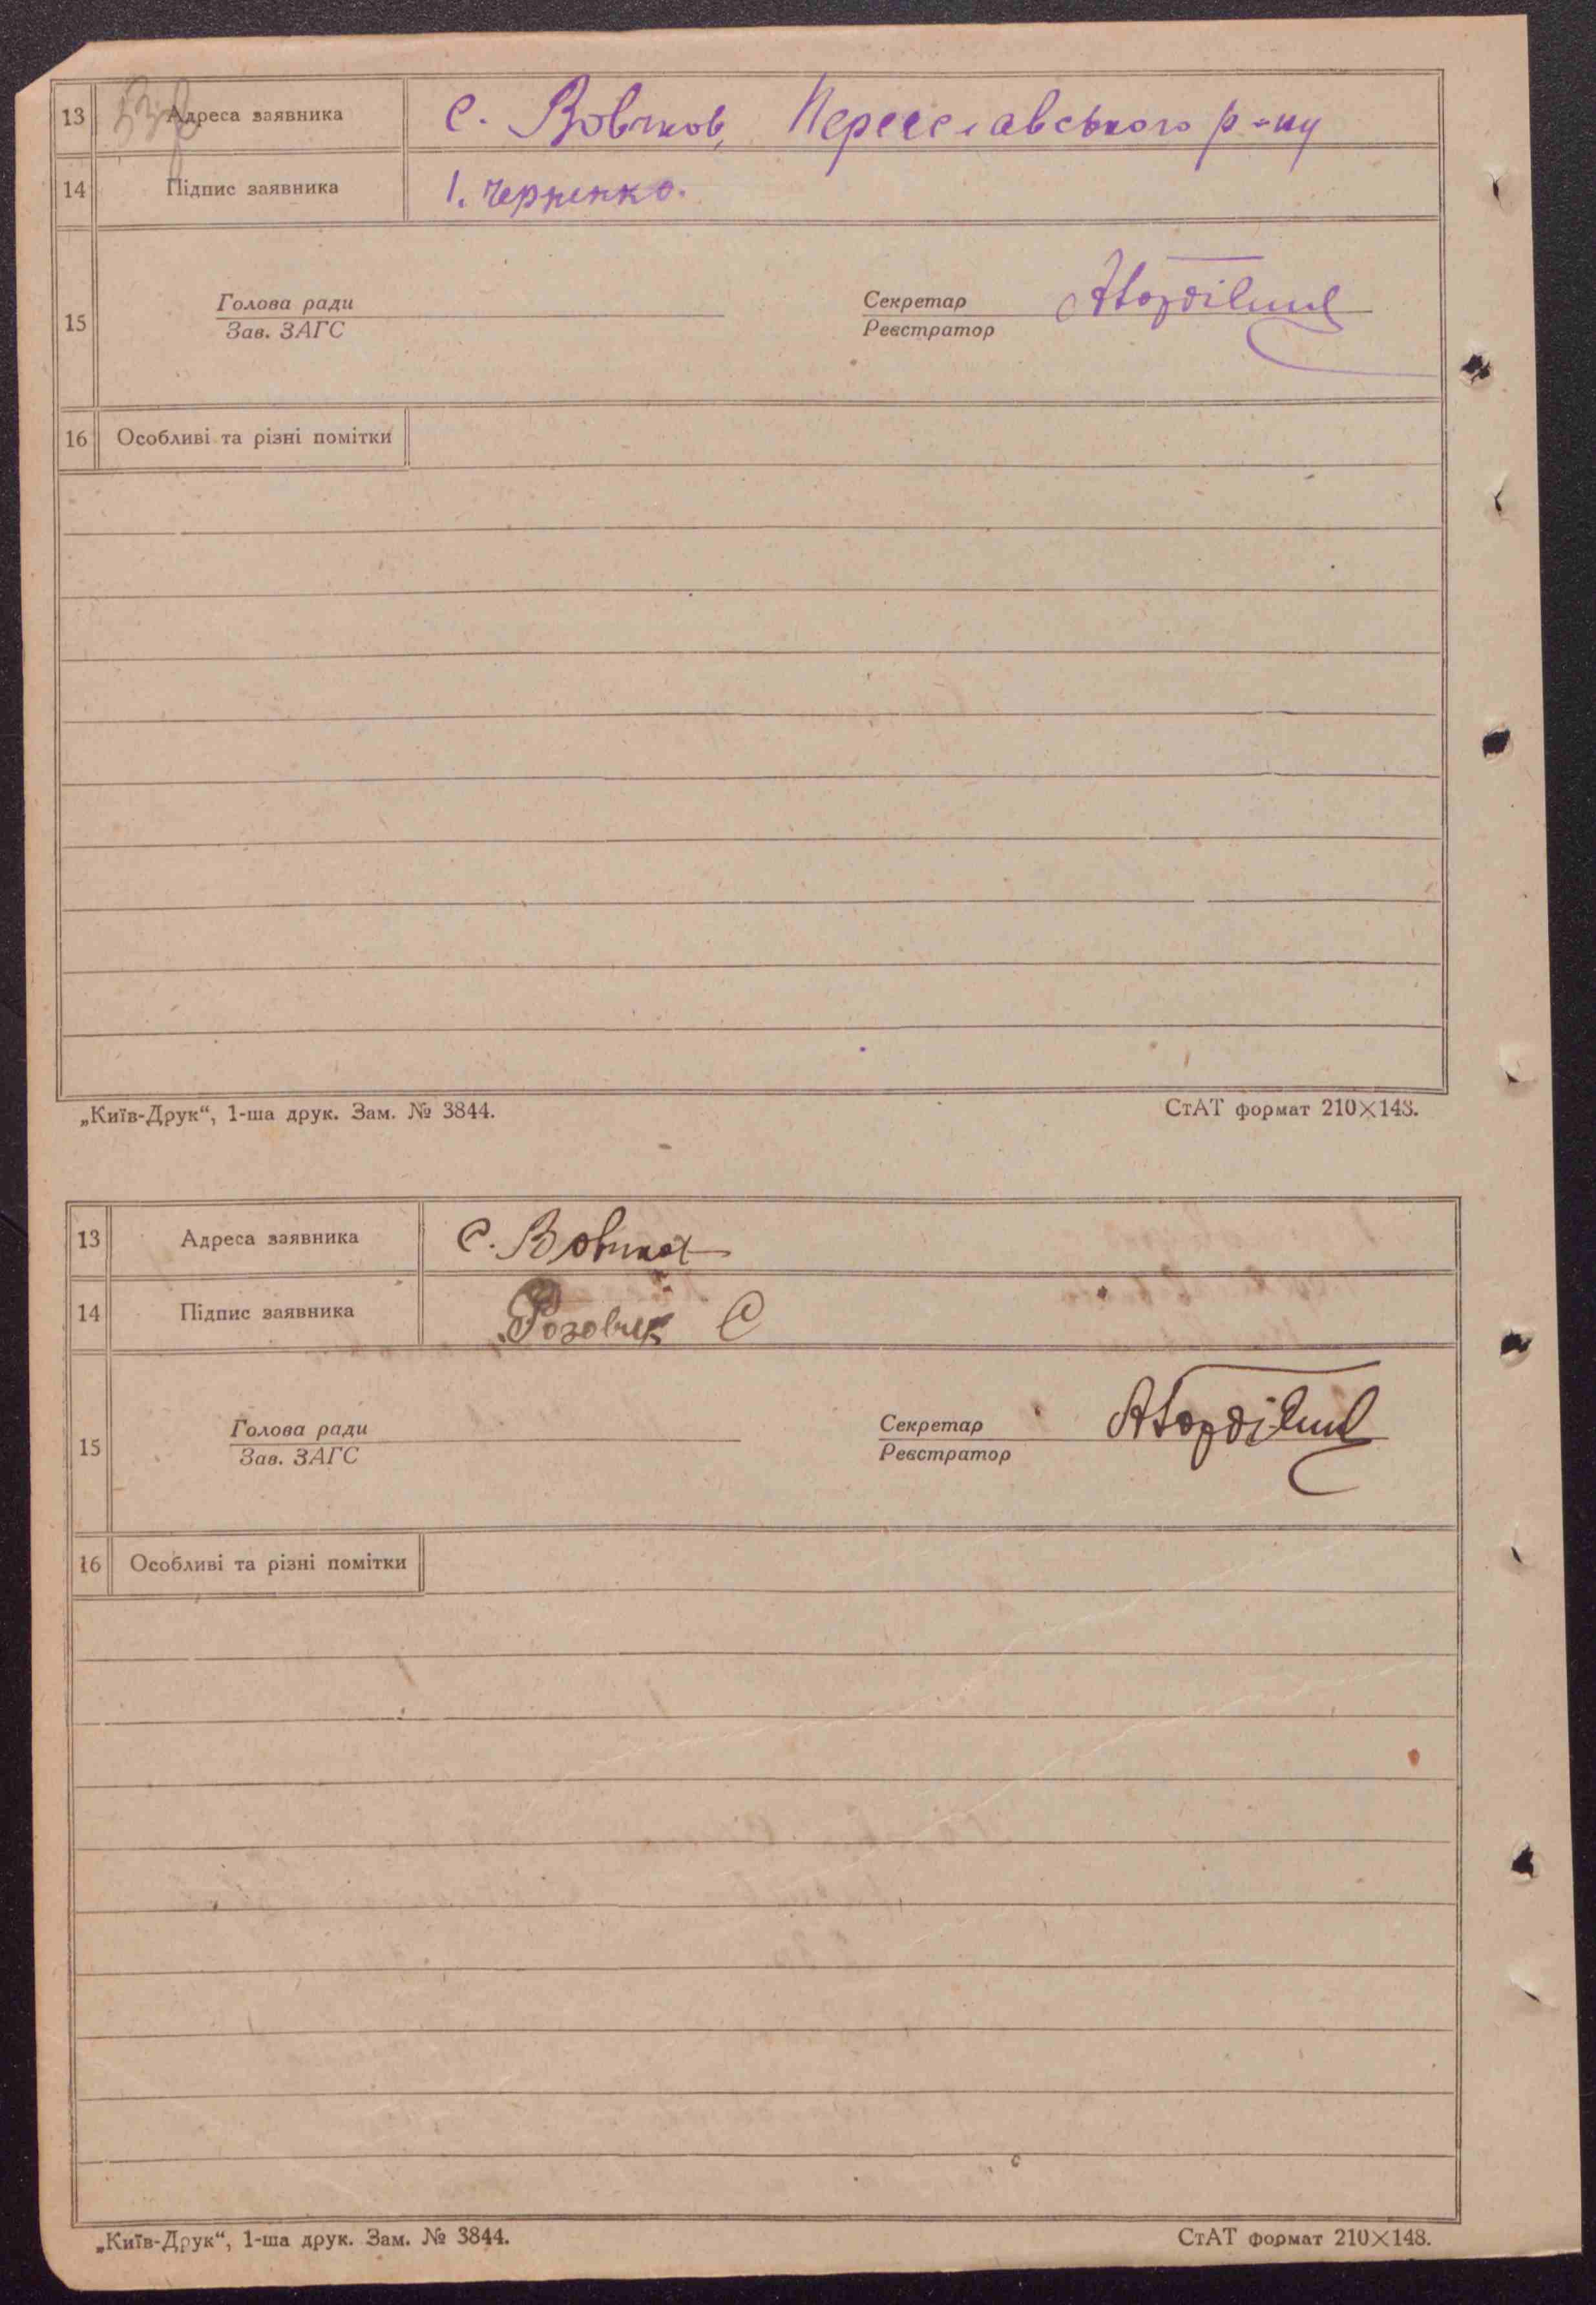 13 Адреса заявника с. Вовчков, Переяславського р-ну
14 Підпис заявника І. Черненко.
15
Голова ради Секретар
Зав. ЗАГС Реєстратор
16 Особливі та різні помітки
„Київ-Друк“, 1-ша друк. Зам. № 3844. СтАТ формат 210×148.
13 Адреса заявника с. Вовчков
14 Підпис заявника
15
Голова ради Секретар
Зав. ЗАГС Реєстратор
16 Особливі та різні помітки
„Київ-Друк“, 1-ша друк. Зам. № 3844. СтАТ формат 210×148.